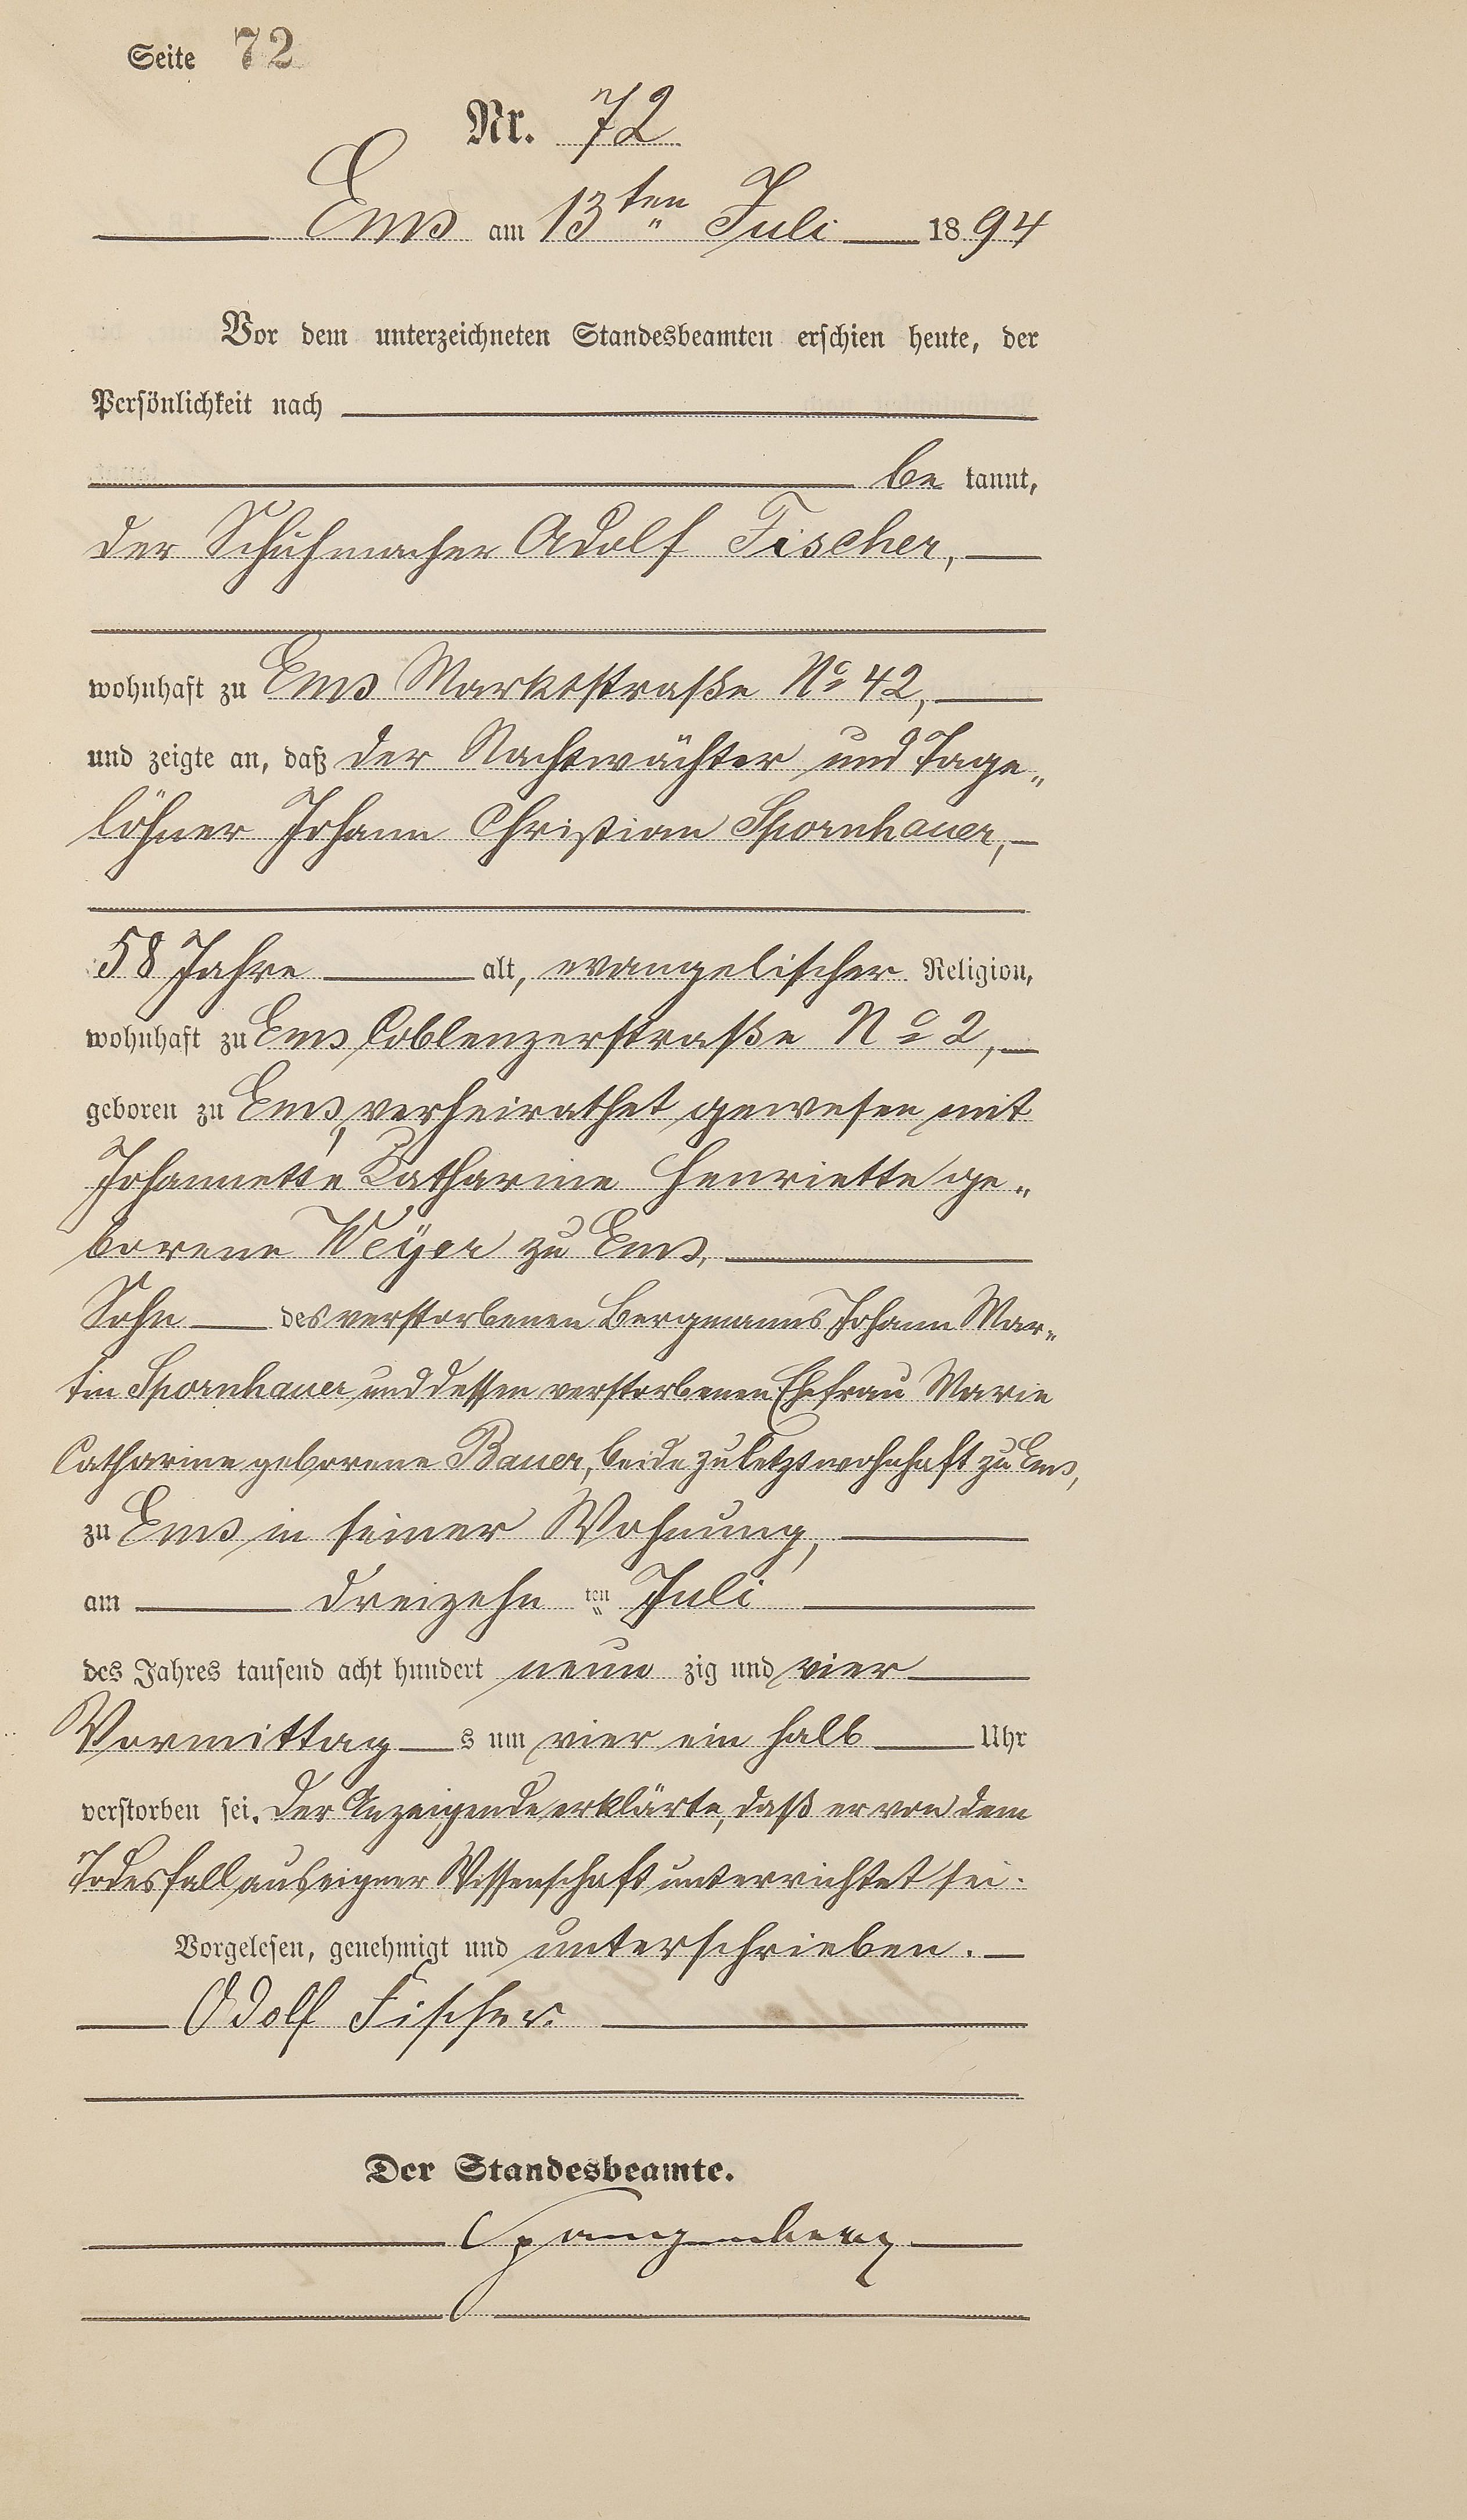 Seite 72
Nr. 72
Ems am 13ten Juli 1894
Vor dem unterzeichneten Standesbeamten erschien heute, der
Persönlichkeit nach
be kannt,
der Schuhmacher Adolf Fischer,
wohnhaft zu Ems Marktstraße No 42,
und zeigte an, daß der Nachtwächter und Tage„
löhner Johann Christian Spornhauer,
58 Jahre alt, evangelischer Religion,
wohnhaft zu Ems Coblenzerstraße No 2,
geboren zu Ems, verheirathet gewesen mit
Johannette Katharine Henriette ge„
borene Weÿer zu Ems,
Sohn des verstorbenen Bergmanns Johann Mar„
tin Spornhauer und dessen verstorbenen Ehefrau Marie
Catharine geborene Bauer, beide zuletzt wohnhaft zu Ems,
zu Ems in seiner Wohnung,
am dreizehn ten Juli
des Jahres tausend acht hundert neun zig und vier
Vormittag s um vier ein halb Uhr
verstorben sei. Der Anzeigende erklärte, daß er von dem
Todesfall aus eigner Wissenschaft unterrichtet sei.
Vorgelesen, genehmigt und unterschrieben.
Adolf Fischer.
Der Standesbeamte.
Spangenberg